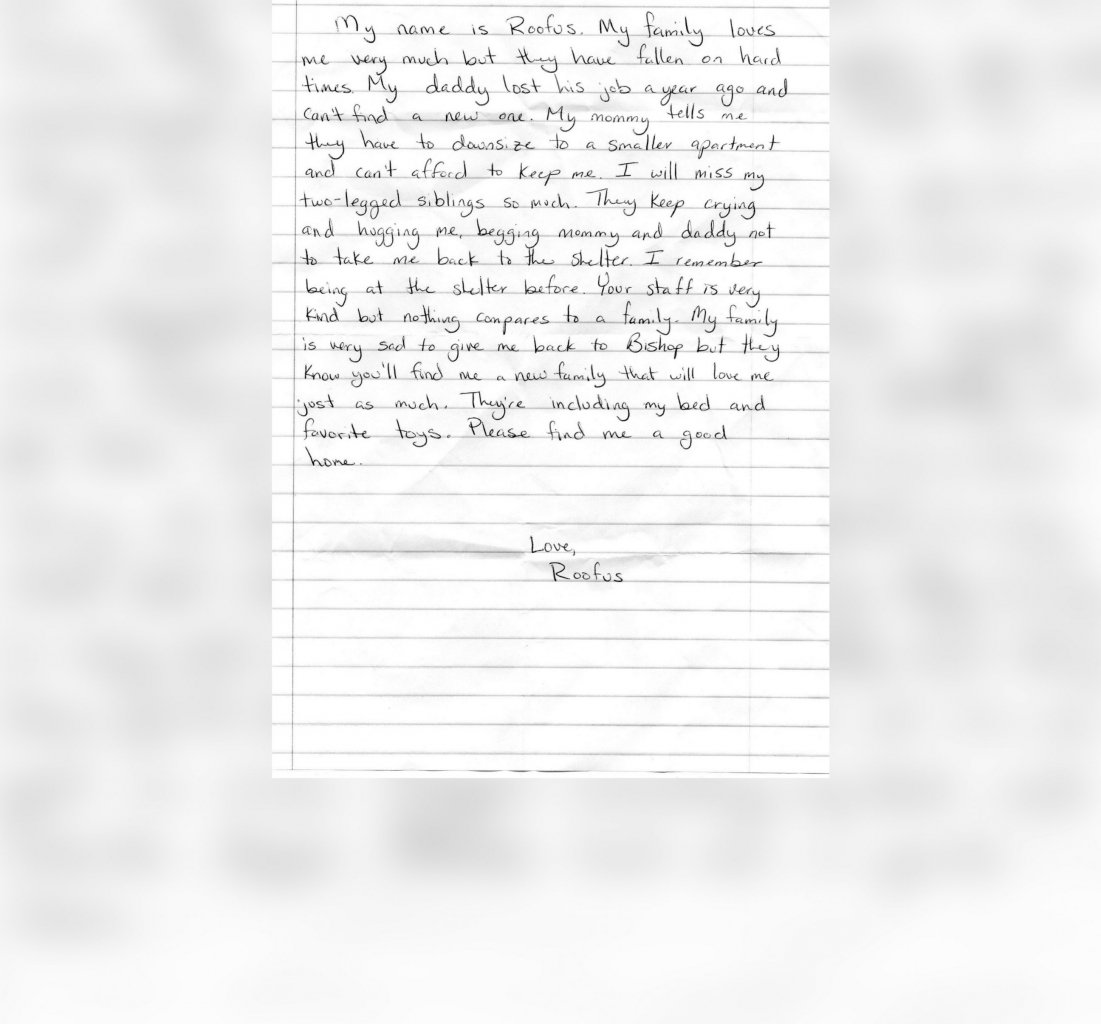 My name is Roofus. My family loves
me very much but they have fallen on hard
times. My daddy lost his job a year ago and
can't find a new one. My mommy tells me
they have to downsize to a smaller apartment
and can't afford to keep me. I will miss my
two-legged siblings so much. They keep crying
and hugging me, begging mommy and daddy not
to take me back to the shelter. I remember
being at the shelter before. Your staff is very
kind but nothing compares to a family. My family
is very sad to give me back to Bishop but they
know you'll find me a new family that will love me
just as much. They're including my bed and
favorite toys. Please find me a good
home.
Love,
Roofus